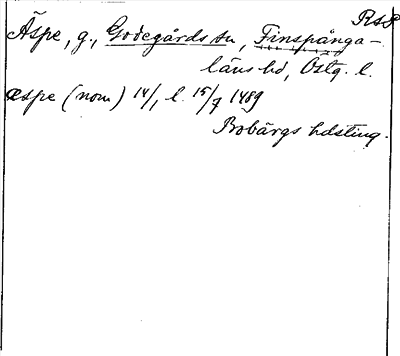 RsB
Äspe, g., Godegårds sn, Finspånga-
läns hd, Östg. l.
æspe (nom) 14/1, l. 15/7 1489
Bobärgs hdsting.